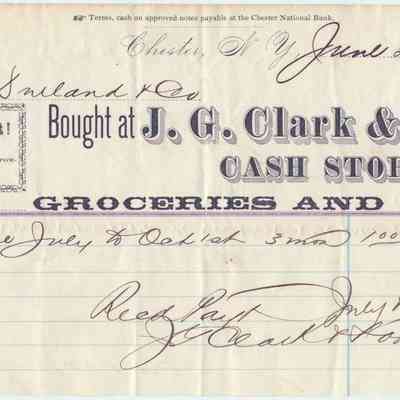 Terms, cash on approved notes payable at the Chester National Bank.
Chester, N.Y., June
& Co
Bought at J. G. Clark &
CASH STOR
GROCERIES AND
July to Oct 1st 3 mos 1 00
Recd Payt July
J G Clark &